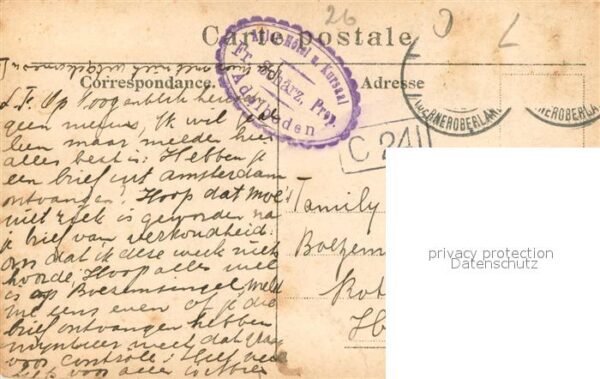 26
Carte postale
Correspondance.
Adresse
Hôtel u. Kursaal
Fr. Schärz, Prop.
Adelboden
BERNEROBERLAND
BERNEROBERLAND
C 241
L.F. Op 't oogenblik
geen nieuws, Ik wil je
een maar melden hier
alles best is. Hebben je
een brief uit amsterdam
ontvangen? Hoop dat Moe's
niet ziek is geworden na
je brief van verkoudheid:
om dat ik deze week niets
hoorde. Hoop alles wel
is op Boezemsingel. Meld
me eens even of je die
brief ontvangen hebben
mijnheer weet dat graag
voor controle:
voor alle
Family
Boezem
Rot
Ho
privacy protection
Datenschutz